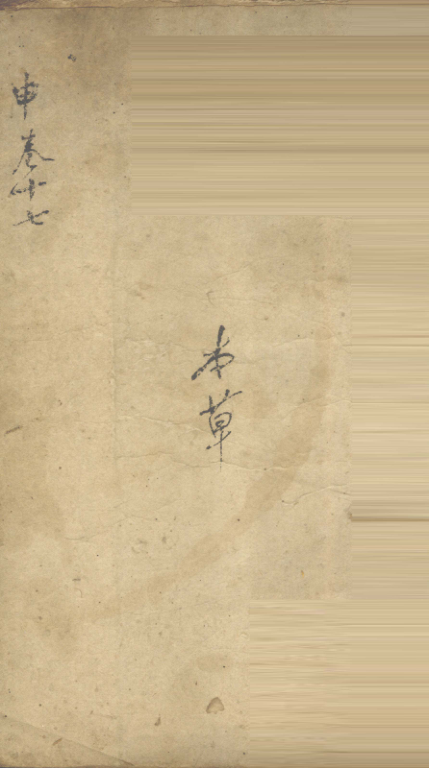 本草
申卷十七